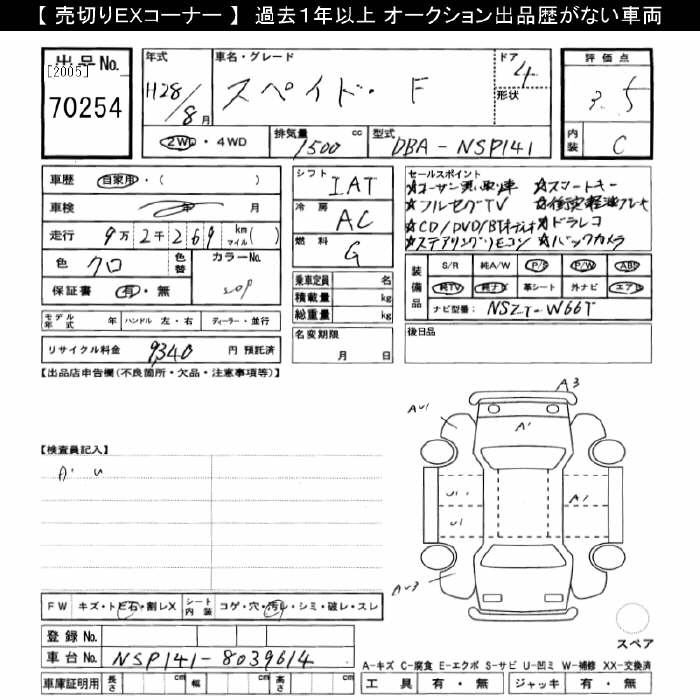 【 売切りEXコーナー 】 過去1年以上 オークション出品歴がない車両
出品No.
[2005]
70254
年式
H28/8月
車名・グレード
スペイド・ F
ドア
4
形状
評価点
3.5
内装
C
2WD・4WD
排気量
1500 cc
型式
DBA-NSP141
車歴 自家用・( )
車検 年 月
走行 9万2千269 km マイル( )
色 クロ 色替 カラーNo.
209
保証書 有・無
モデル年式 年 ハンドル 左・右 ディーラー・並行
リサイクル料金 9340 円 預託済
シフト
IAT
冷房
AC
燃料
G
乗車定員 名
積載量 kg
総重量 kg
名変期限
月 日
セールスポイント
☆スマートキー
☆フルセグTV ☆衝突軽減ブレーキ
☆CD/DVD/BTオーディオ ☆ドラレコ
☆ステアリングリモコン ☆バックカメラ
装備品
S/R 純A/W P/S P/W ABS
純TV 純ナビ 革シート 外ナビ エアB
ナビ型番: NSZT-W66T
後日品
【出品店申告欄(不良箇所・欠品・注意事項等)】
【検査員記入】
A' U
A3
AU1
A'
U1
U1
A1
AU3
スペア
FW キズ・トビ石・割レX シート内装 コゲ・穴・汚レ・シミ・破レ・スレ
登録No.
車台No. NSP141-8039614
車庫証明用 長さ cm 幅 cm 高さ cm
A-キズ C-腐食 E-エクボ S-サビ U-凹ミ W-補修 XX-交換済
工具 有・無 ジャッキ 有・無